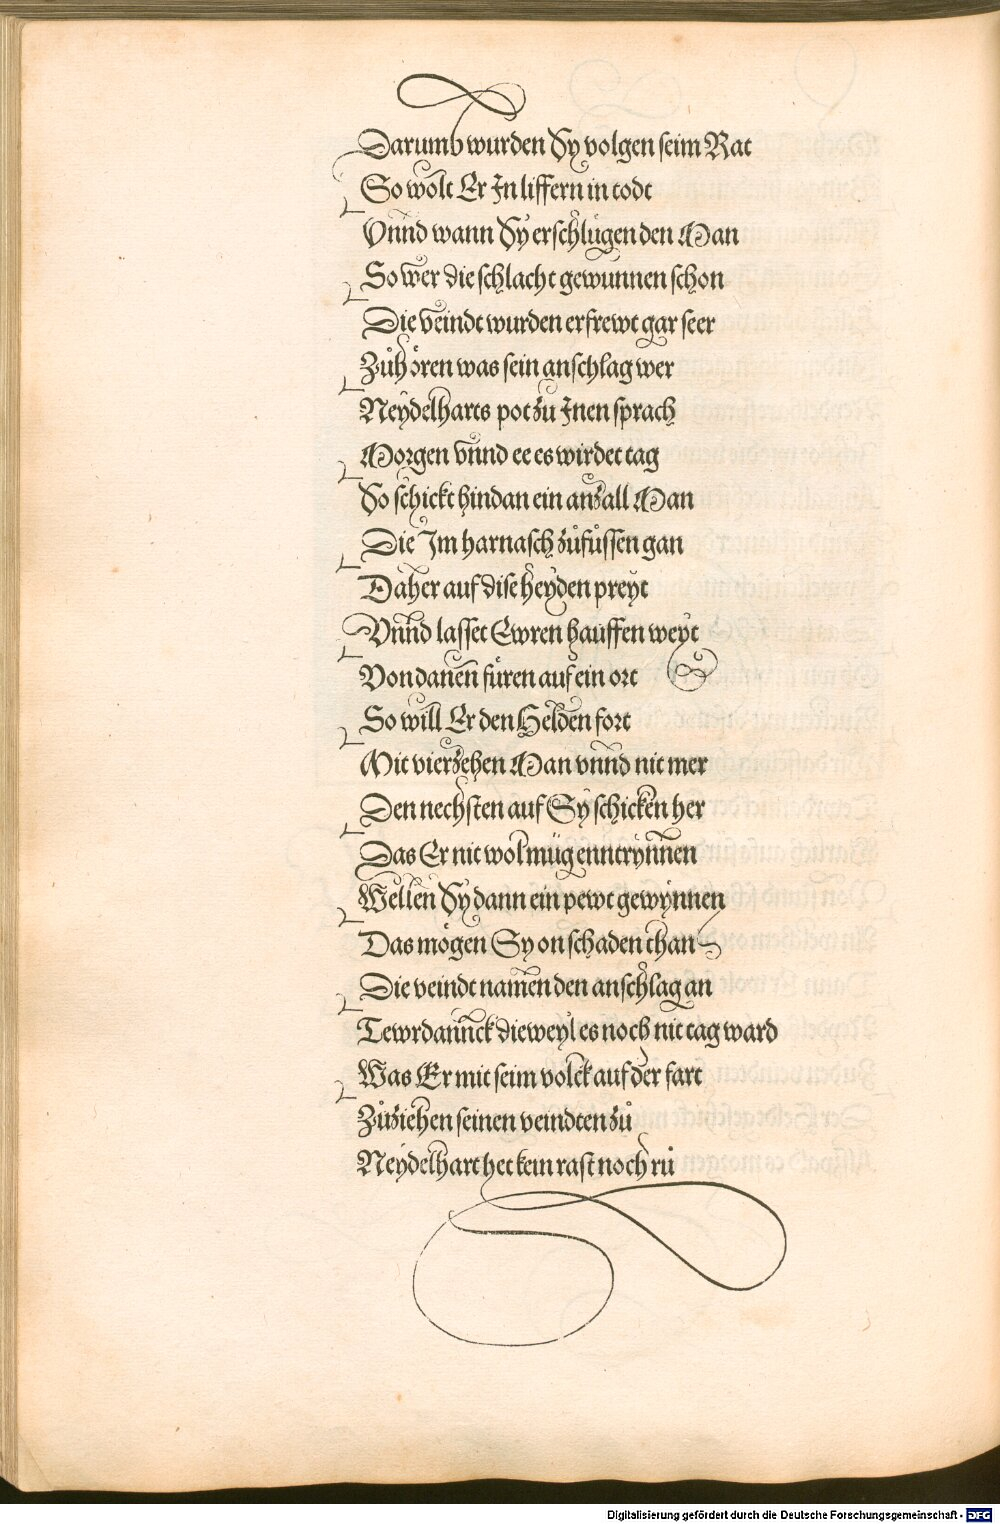 Darumb wurden Sy volgen seim Rat
So wolt Er In liffern in todt
Vnnd wann Sy erschlůgen den Man
So wer die schlacht gewunnen schon
Die veindt wurden erfrewt gar seer
Zůhören was sein anschlag wer
Neydelharts pot zu Inen sprach
Morgen vnnd ee es wirdet tag
So schickt hindan ein anzall Man
Die Im harnasch zůfůssen gan
Daher auf dise heyden preyt
Vnnd lasset Ewren hauffen weyt
Von danen füren auf ein ort
So will Er den Helden fort
Mit vierzehen Man vnnd nit mer
Den nechsten auf Sy schicken her
Das Er nit wol müg enntrynnen
Wellen Sy dann ein pewt gewynnen
Das mögen Sy on schaden than
Die veindt namen den anschlag an
Tewrdannck dieweyl es noch nit tag ward
Was Er mit seim volck auf der fart
Zůziehen seinen veindten zů
Neydelhart het kein rast noch rů
Digitalisierung gefördert durch die Deutsche Forschungsgemeinschaft - DFG